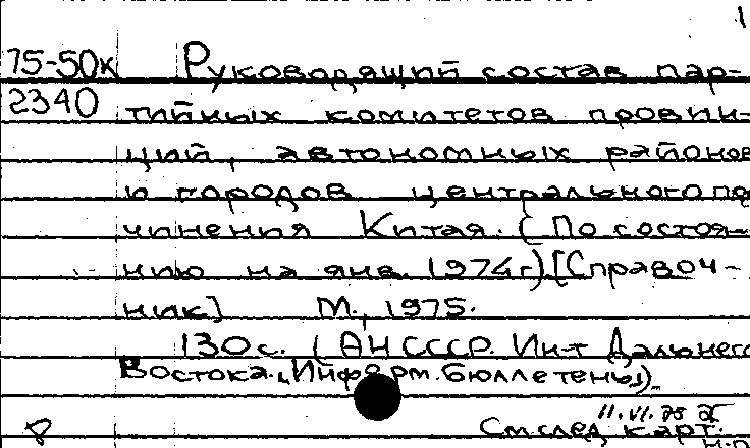 1
75-50к Руководящий состав пар-
2340 тийных комитетов провин-
ций, автономных районов
и городов центрального по
чинения Китая. (По состоя-
нию на янв. 1974г) [Справоч-
ник] М., 1975.
130с. (АН СССР. Ин-т Дальнего
Востока. „Информ. бюллетень")
11.VI.75
См.след.карт.